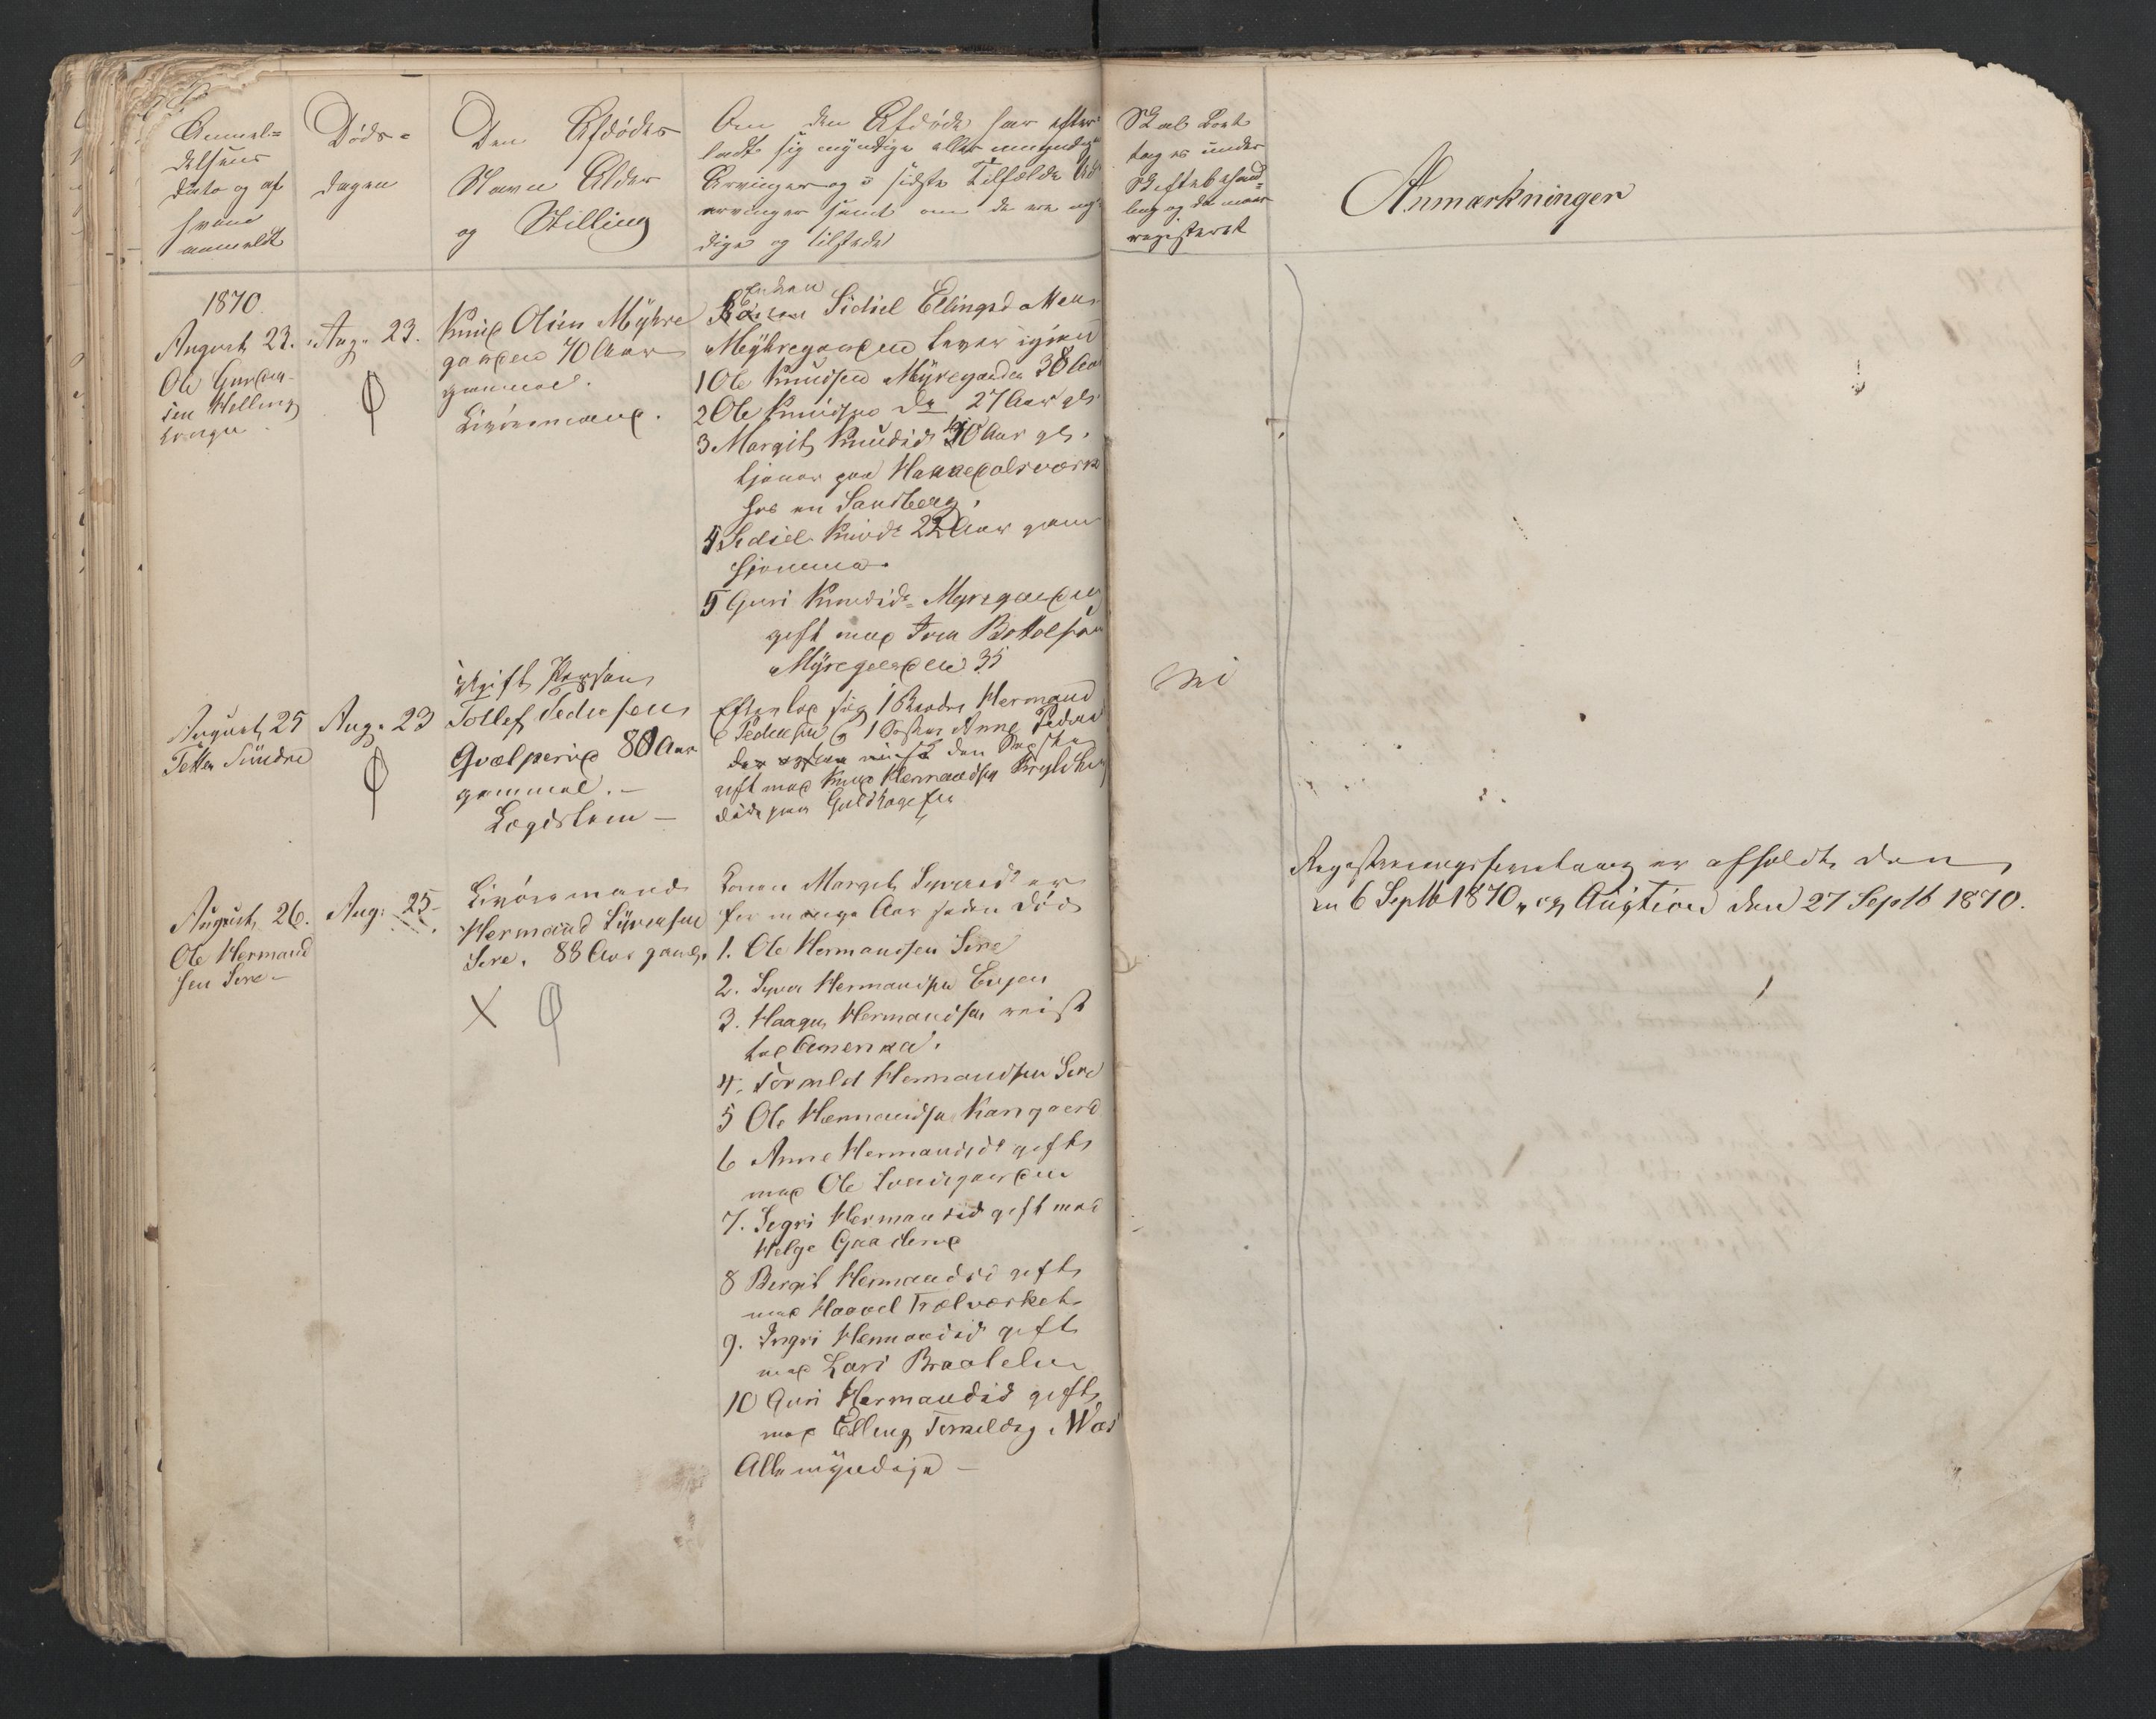 Anmel=
delsens
Dato og af
hvem
anmeldt
Døds-
dagen
Den Afdødes
Navn Alder
og Stilling
Om den Afdøde har efter
ladt sig myndige eller umyndige
Arvinger og i sidste Tilfælde
arvinger samt om de ere
dige og tilstede
Skal Boet
tages under
Skiftebehand=
ling og da naar
registeret
Anmærkninger
1870.
August 23.
Ole Gunder
sen Helling
Aug. 23.
Knud Olsen Myhre
garden 70 Aar
gammel.
Livøremand.
Enken
Sidsel Ellingsdatter
Myhregarden lever igjen
1 Ole Knudsen Myregarden 38 Aar
2 Ole Knudsen do 27 Aar gl.
3 Margit Knudsd 30 Aar gl.
tjener paa Hakkedalsværk
hos en Sandberg.
4 Sidsel Knudsd 22 Aar gam
hjemme.
5 Guri Knudsd Myregarden
gift med Iver Bottolfsen
Myregarden 35
August 25
Sundre
Aug. 23
ugift Person
Tollef Pedersen
Qvælperud 80 Aar
gammel. –
Lægdslem –
Efterlod sig 1 Broder Hermand
Pedersen og 1 Søster Anne Peders
gift med Knud Hermandsen
nei
August 26.
Ole Hermand
sen Sire –
Aug. 25.
Livøremand
Hermand Syversen
Sire. 83 Aar gaml.
Konen Margit Syversd er
for mange Aar siden død
1. Ole Hermansen Sire
2. Syver Hermandsen Engen
3. Haagen Hermandsen reist
til Amerika.
4. Torkild Hermandsen Sire
5 Ole Hermandsen Kangaard
6 Anne Hermandsd gift
med Ole Svensgarden
7. Sigri Hermandsd gift med
Helge Gaaderud
8 Bergit Hermandsd gift
med Haavel Trælverket
9. Ingri Hermandsd gift
med Lars Braatelien
10 Guri Hermandsd gift
med Elling Torkeldsg.
Alle myndige –
Registreringsforretning er afholdt den
6 Septb 1870 og Auction den 27 Septb 1870.